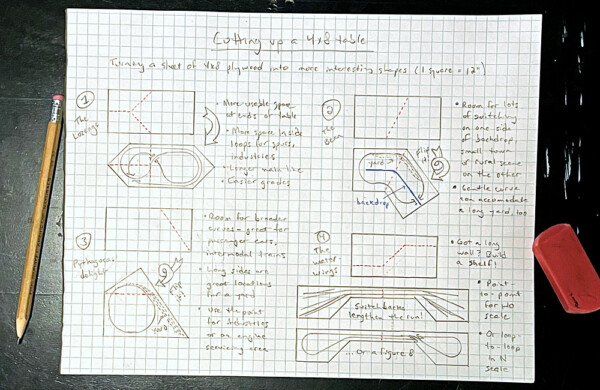 Cutting up a 4x8 table
Turning a sheet of 4x8 plywood into more interesting shapes (1 square = 12")
1
The
Lozenge
• More usable space
at ends of table
• More space inside
loops for spurs,
industries
• Longer main line
• Easier grades
2
The
Bean
yard
flip
it!
backdrop
• Room for lots
of switching
on one side
of backdrop,
small town
or rural scene
on the other
• Gentle curve
can accomodate
a long yard, too
3
Pythagorean
delight
flip
it!
yard
• Room for broader
curves = great for
passenger cars,
intermodal trains
• Long sides are
great locations
for a yard
• Use the point
for industries
or an engine
servicing area
4
The
water
wings
• Got a long
wall? Build
a shelf!
Switchbacks
lengthen the run!
• Point-
to-point
for HO
scale
...Or a figure 8
• Or loop-
to-loop
in N
scale